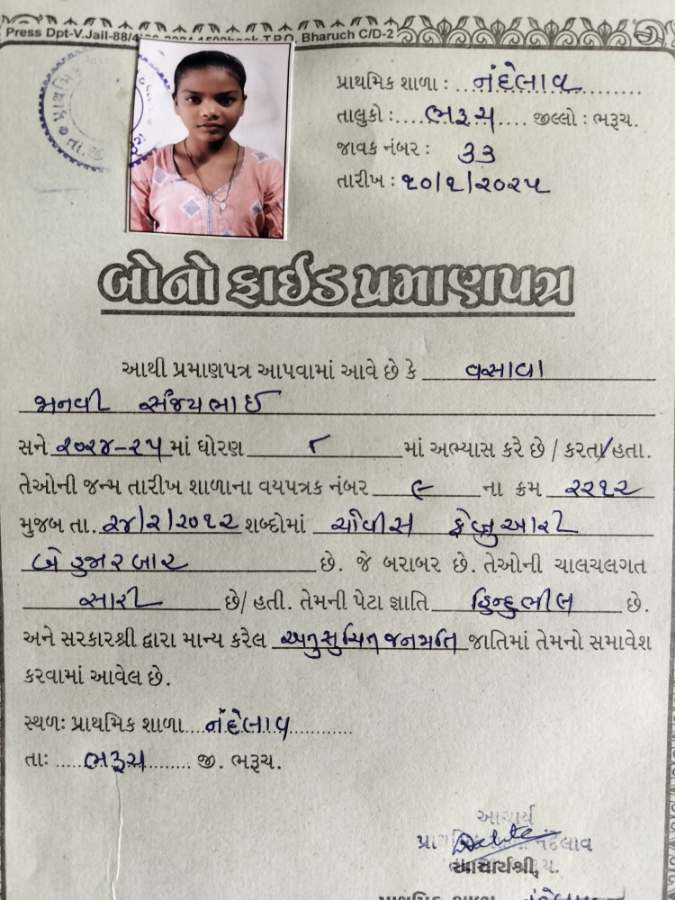 Press Dpt-V.Jail-88/4 T.P.O. Bharuch C/D-2
પ્રાથમિક શાળા : નંદેલાવ
તાલુકો : ભરૂચ જીલ્લો : ભરૂચ.
જાવક નંબર : ૩૩
તારીખ : ૧૦/૧/૨૦૨૫
બોનો ફાઈડ પ્રમાણપત્ર
આથી પ્રમાણપત્ર આપવામાં આવે છે કે વસાવા
માનવી સંજયભાઈ
સને ૨૦૨૪-૨૫ માં ધોરણ ૮ માં અભ્યાસ કરે છે / કરતા/હતા.
તેઓની જન્મ તારીખ શાળાના વયપત્રક નંબર ૯ ના ક્રમ ૨૨૧૨
મુજબ તા. ૨૪/૨/૨૦૧૨ શબ્દોમાં ચોવીસ ફેબ્રુઆરી
બે હજાર બાર છે. જે બરાબર છે. તેઓની ચાલચલગત
સારી છે/ હતી. તેમની પેટા જ્ઞાતિ હિન્દુ ભીલ છે.
અને સરકારશ્રી દ્વારા માન્ય કરેલ અનુસુચિત જનજાતિ જાતિમાં તેમનો સમાવેશ
કરવામાં આવેલ છે.
સ્થળઃ પ્રાથમિક શાળા નંદેલાવ
તાઃ ભરૂચ જી. ભરૂચ.
આચાર્ય
નંદેલાવ
આચાર્યશ્રી,